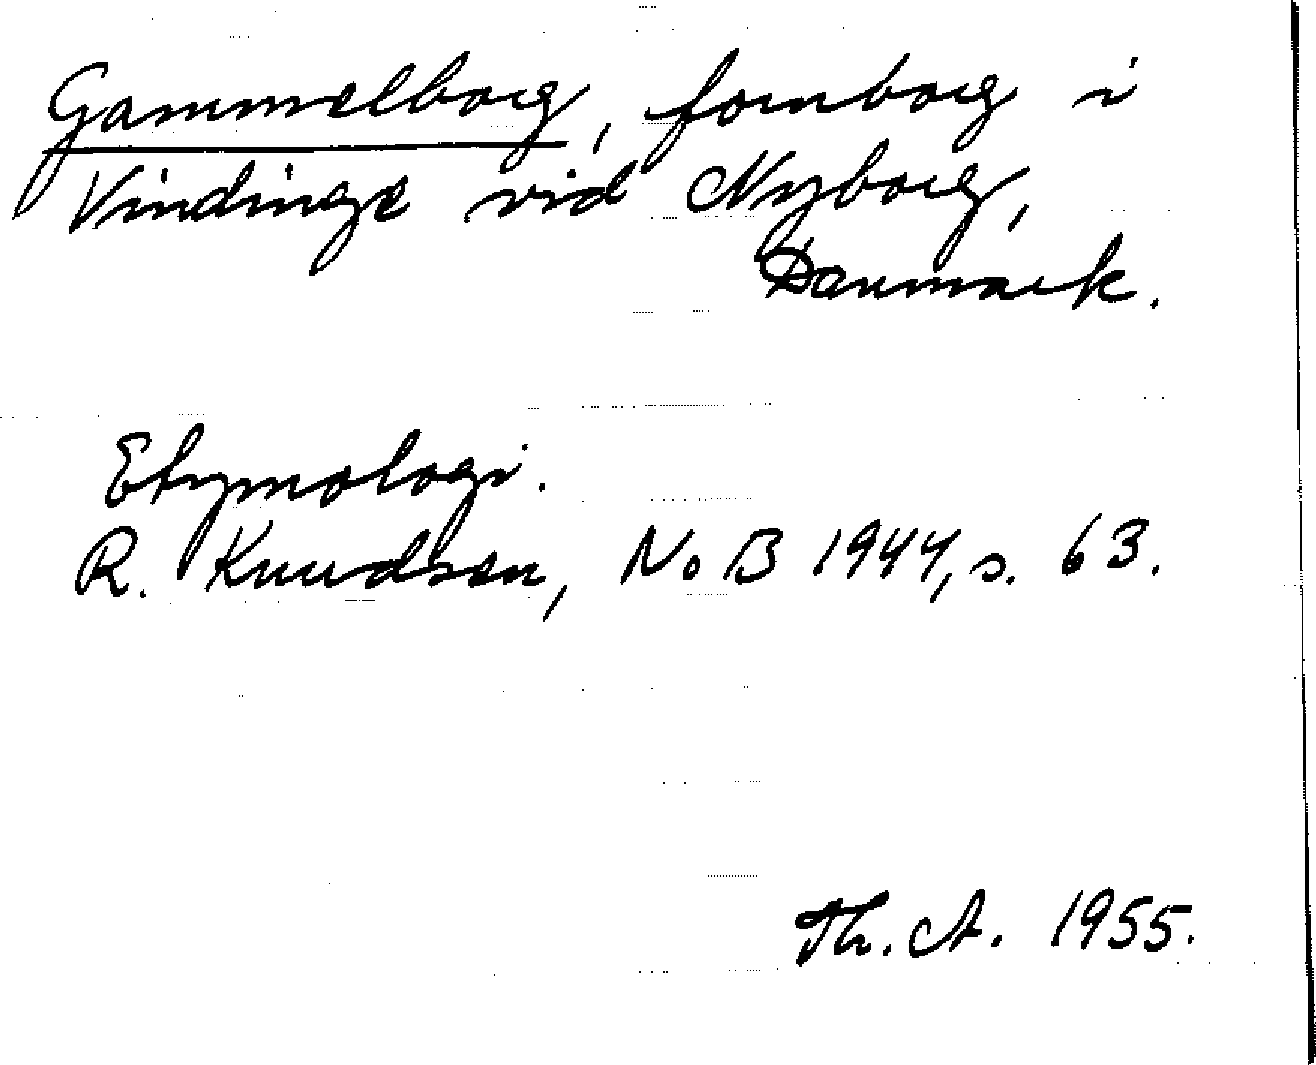 Gammelborg, fornborg i
Vindinge vid Nyborg,
Danmark.
Etymologi.
R. Knudsen, NoB 1944, s. 63.
Th. A. 1955.